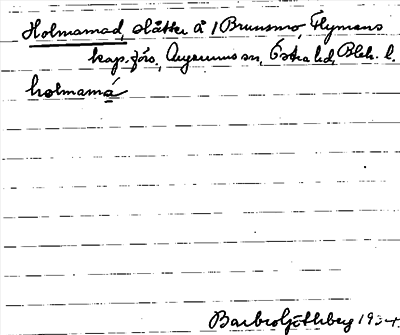 Holmamad, slåtter å 1 Brunsmo, Flymens
kap. förs., Augerums sn, Östra hd, Blek. l.
holmamá
Barbro Göthberg 1934.